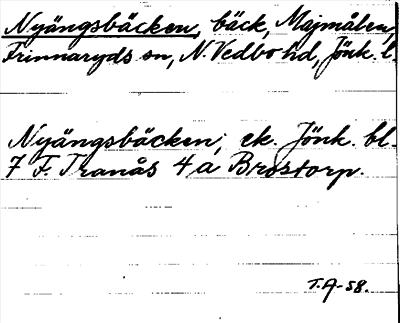 Nyängsbäcken, bäck, Majmålen,
Frinnaryds sn, N. Vedbo hd, Jönk. l.
Nyängsbäcken, ek. Jönk. bl.
7 F. Tranås 4 a Brostorp.
T.A-58.